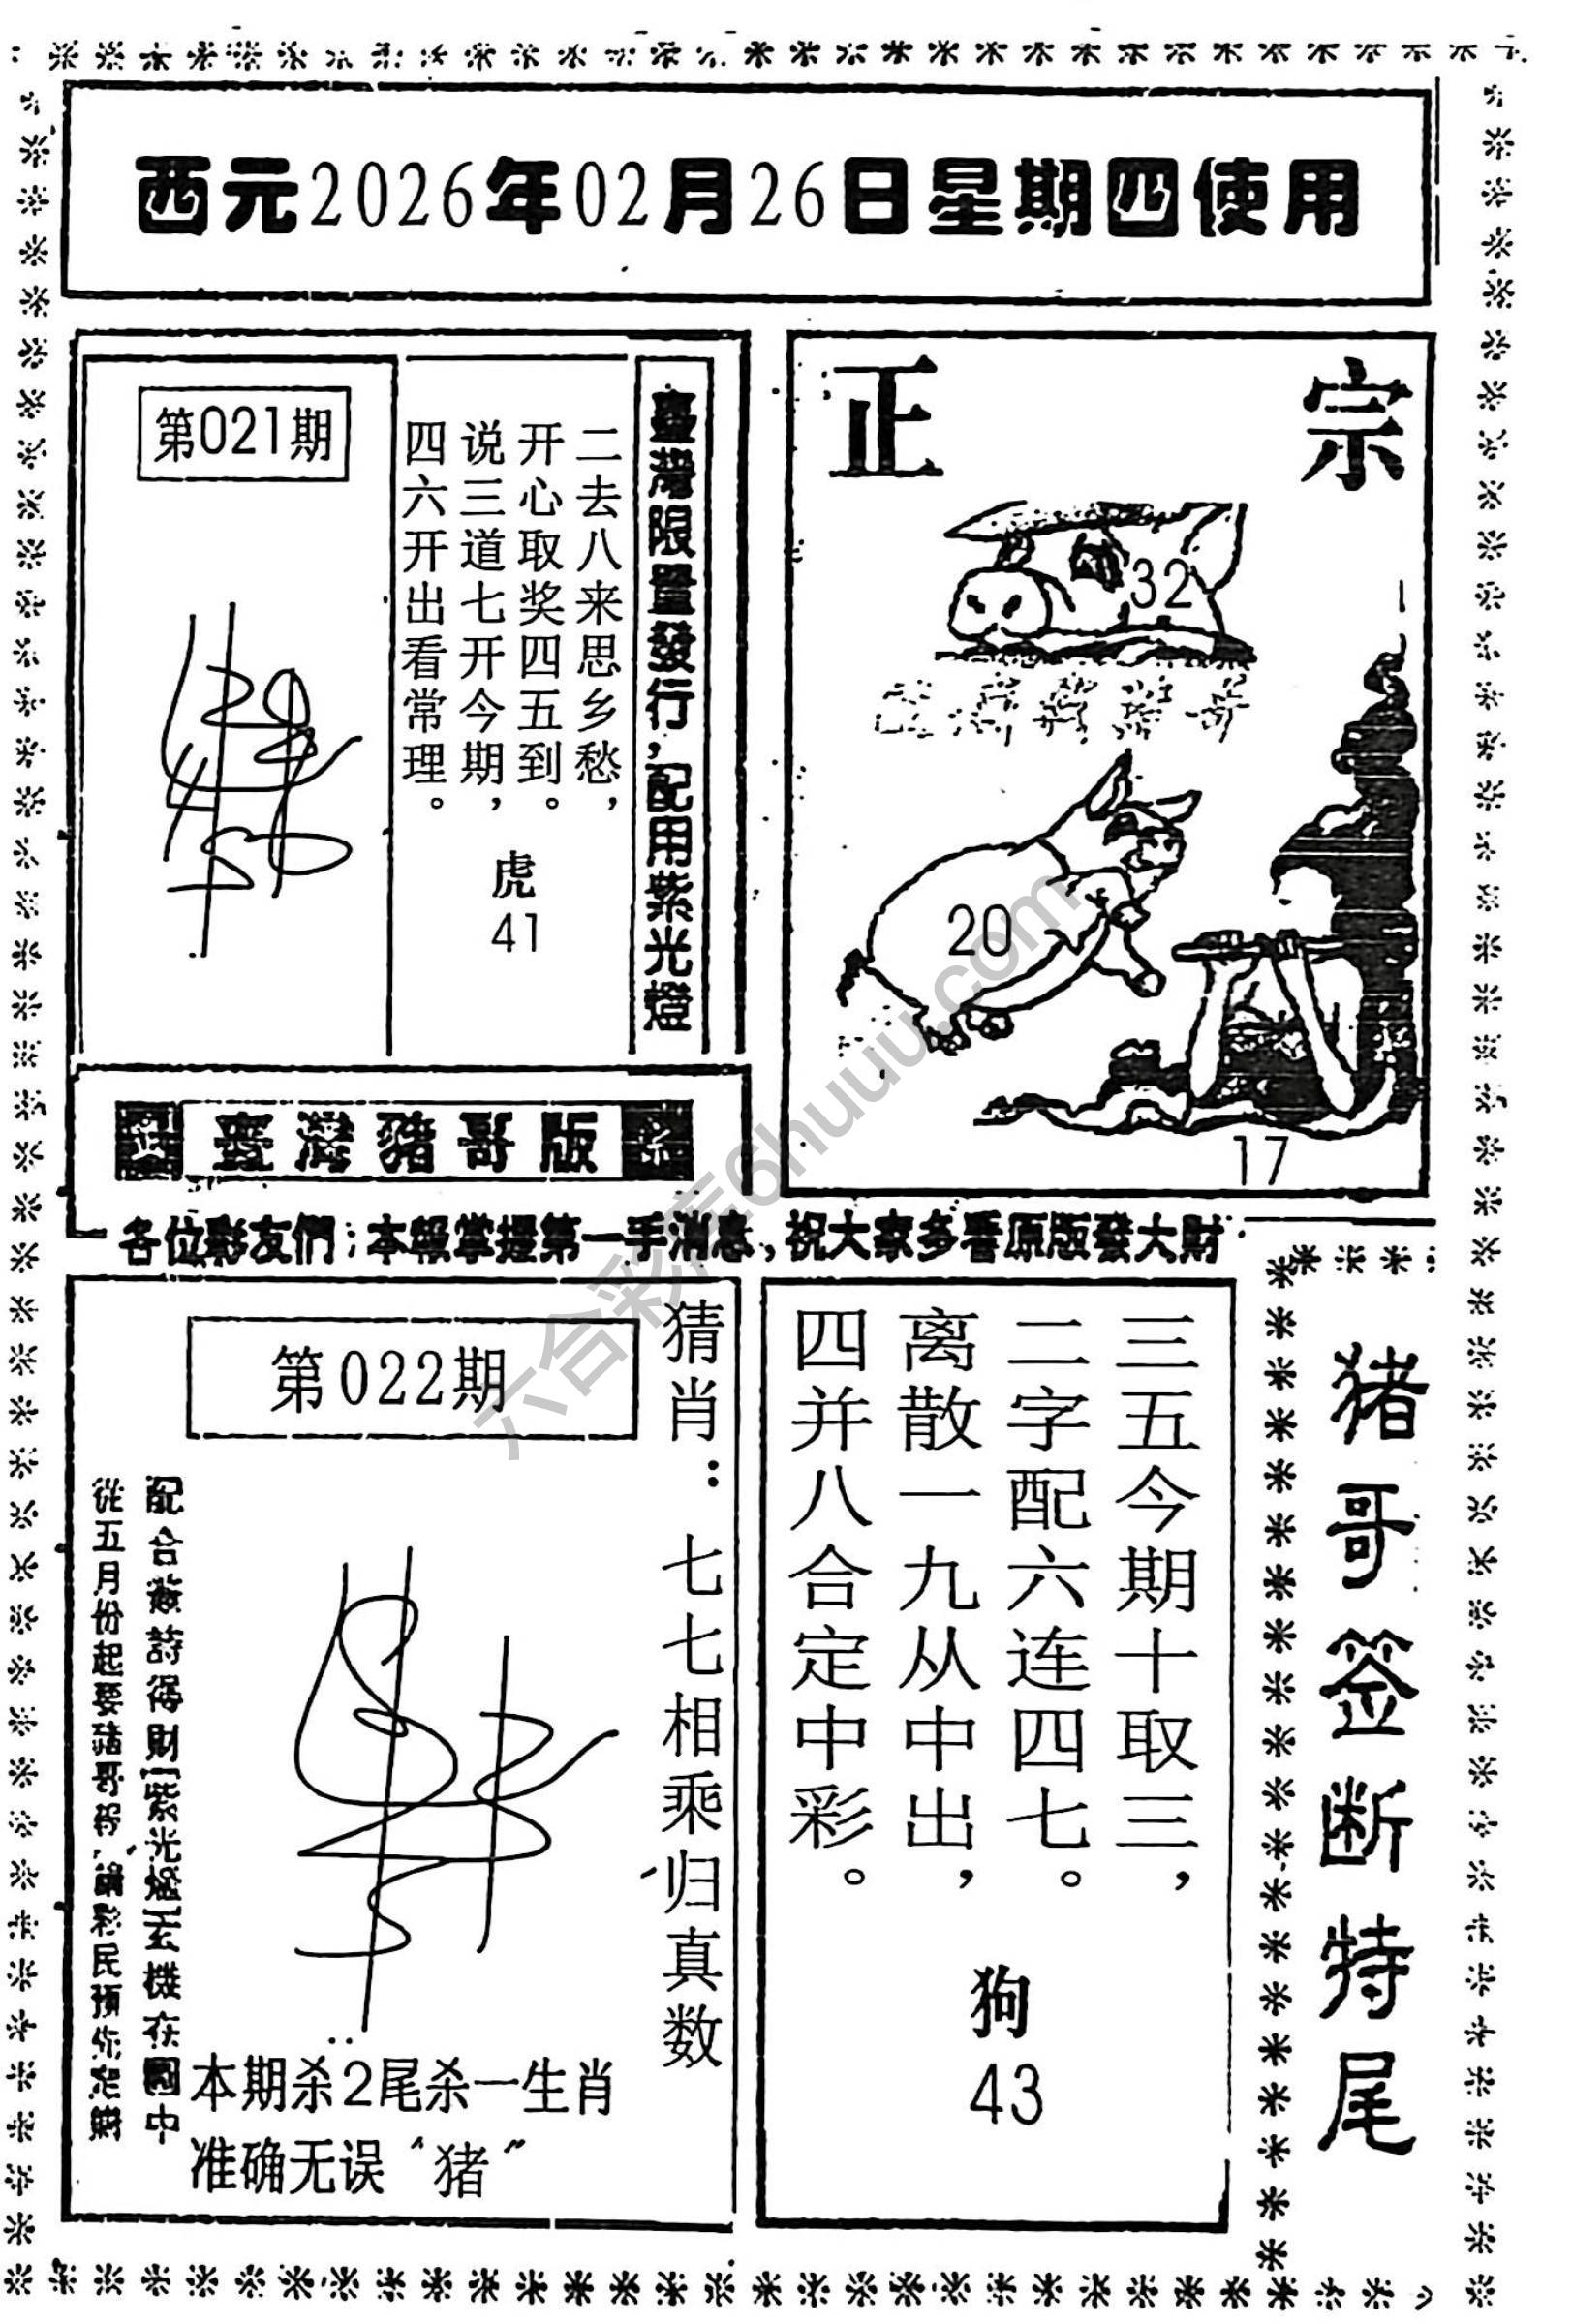 西元2026年02月26日星期四使用
第021期
臺灣限量發行，配用紫光燈
二去八来思乡愁，
开心取奖四五到。
说三道七开今期，
四六开出看常理。
虎
41
正宗
32
20
17
臺灣豬哥版
各位彩友們：本報掌握第一手消息，祝大家多看原版發大財
第022期
猜肖：七七相乘归真数
配合 詩得財紫光燈玄機在圖中
從五月份起要豬哥 彩民預
本期杀2尾杀一生肖
准确无误“猪”
三五今期十取三，
二字配六连四七。
离散一九从中出，
四并八合定中彩。
狗
43
猪哥签断特尾
六合彩库6huuu.com